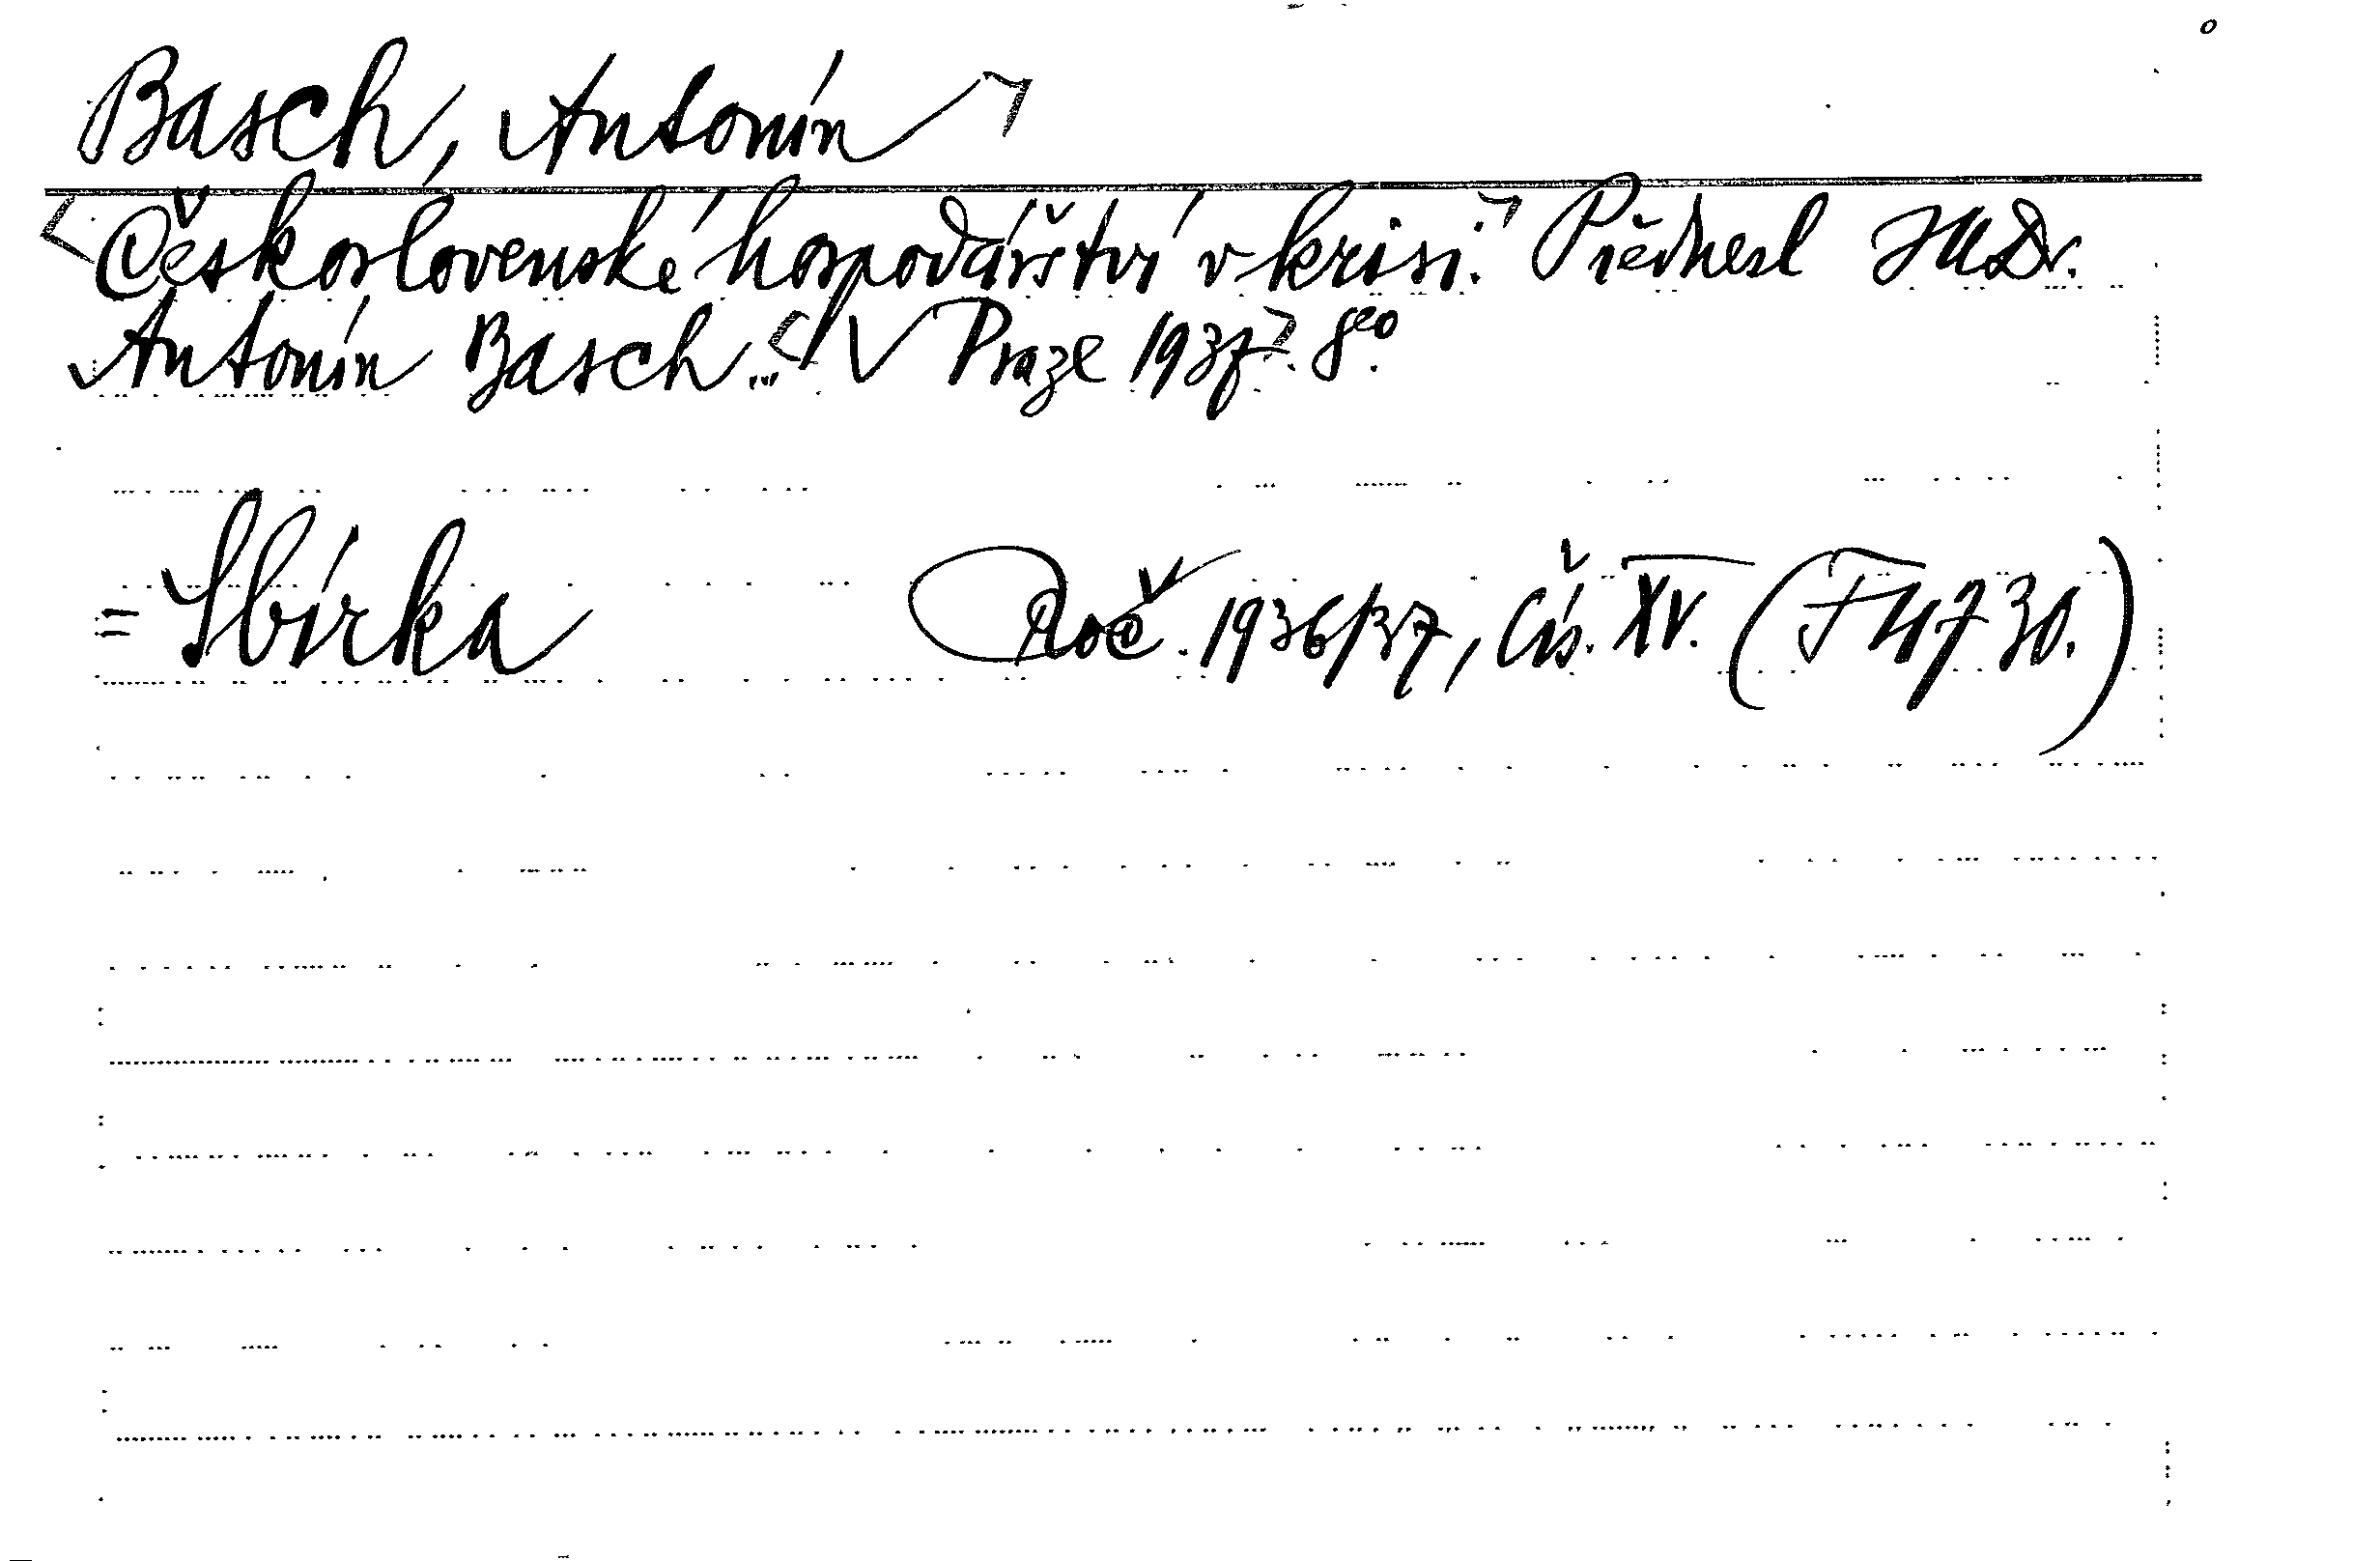 Basch, Antonín
Československé hospodářství v krisi. Přednesl JUDr.
Antonín Basch... V Praze 1937. 8°.
= Sbírka Roč. 1936/37, čís. XV. (F 4730.)